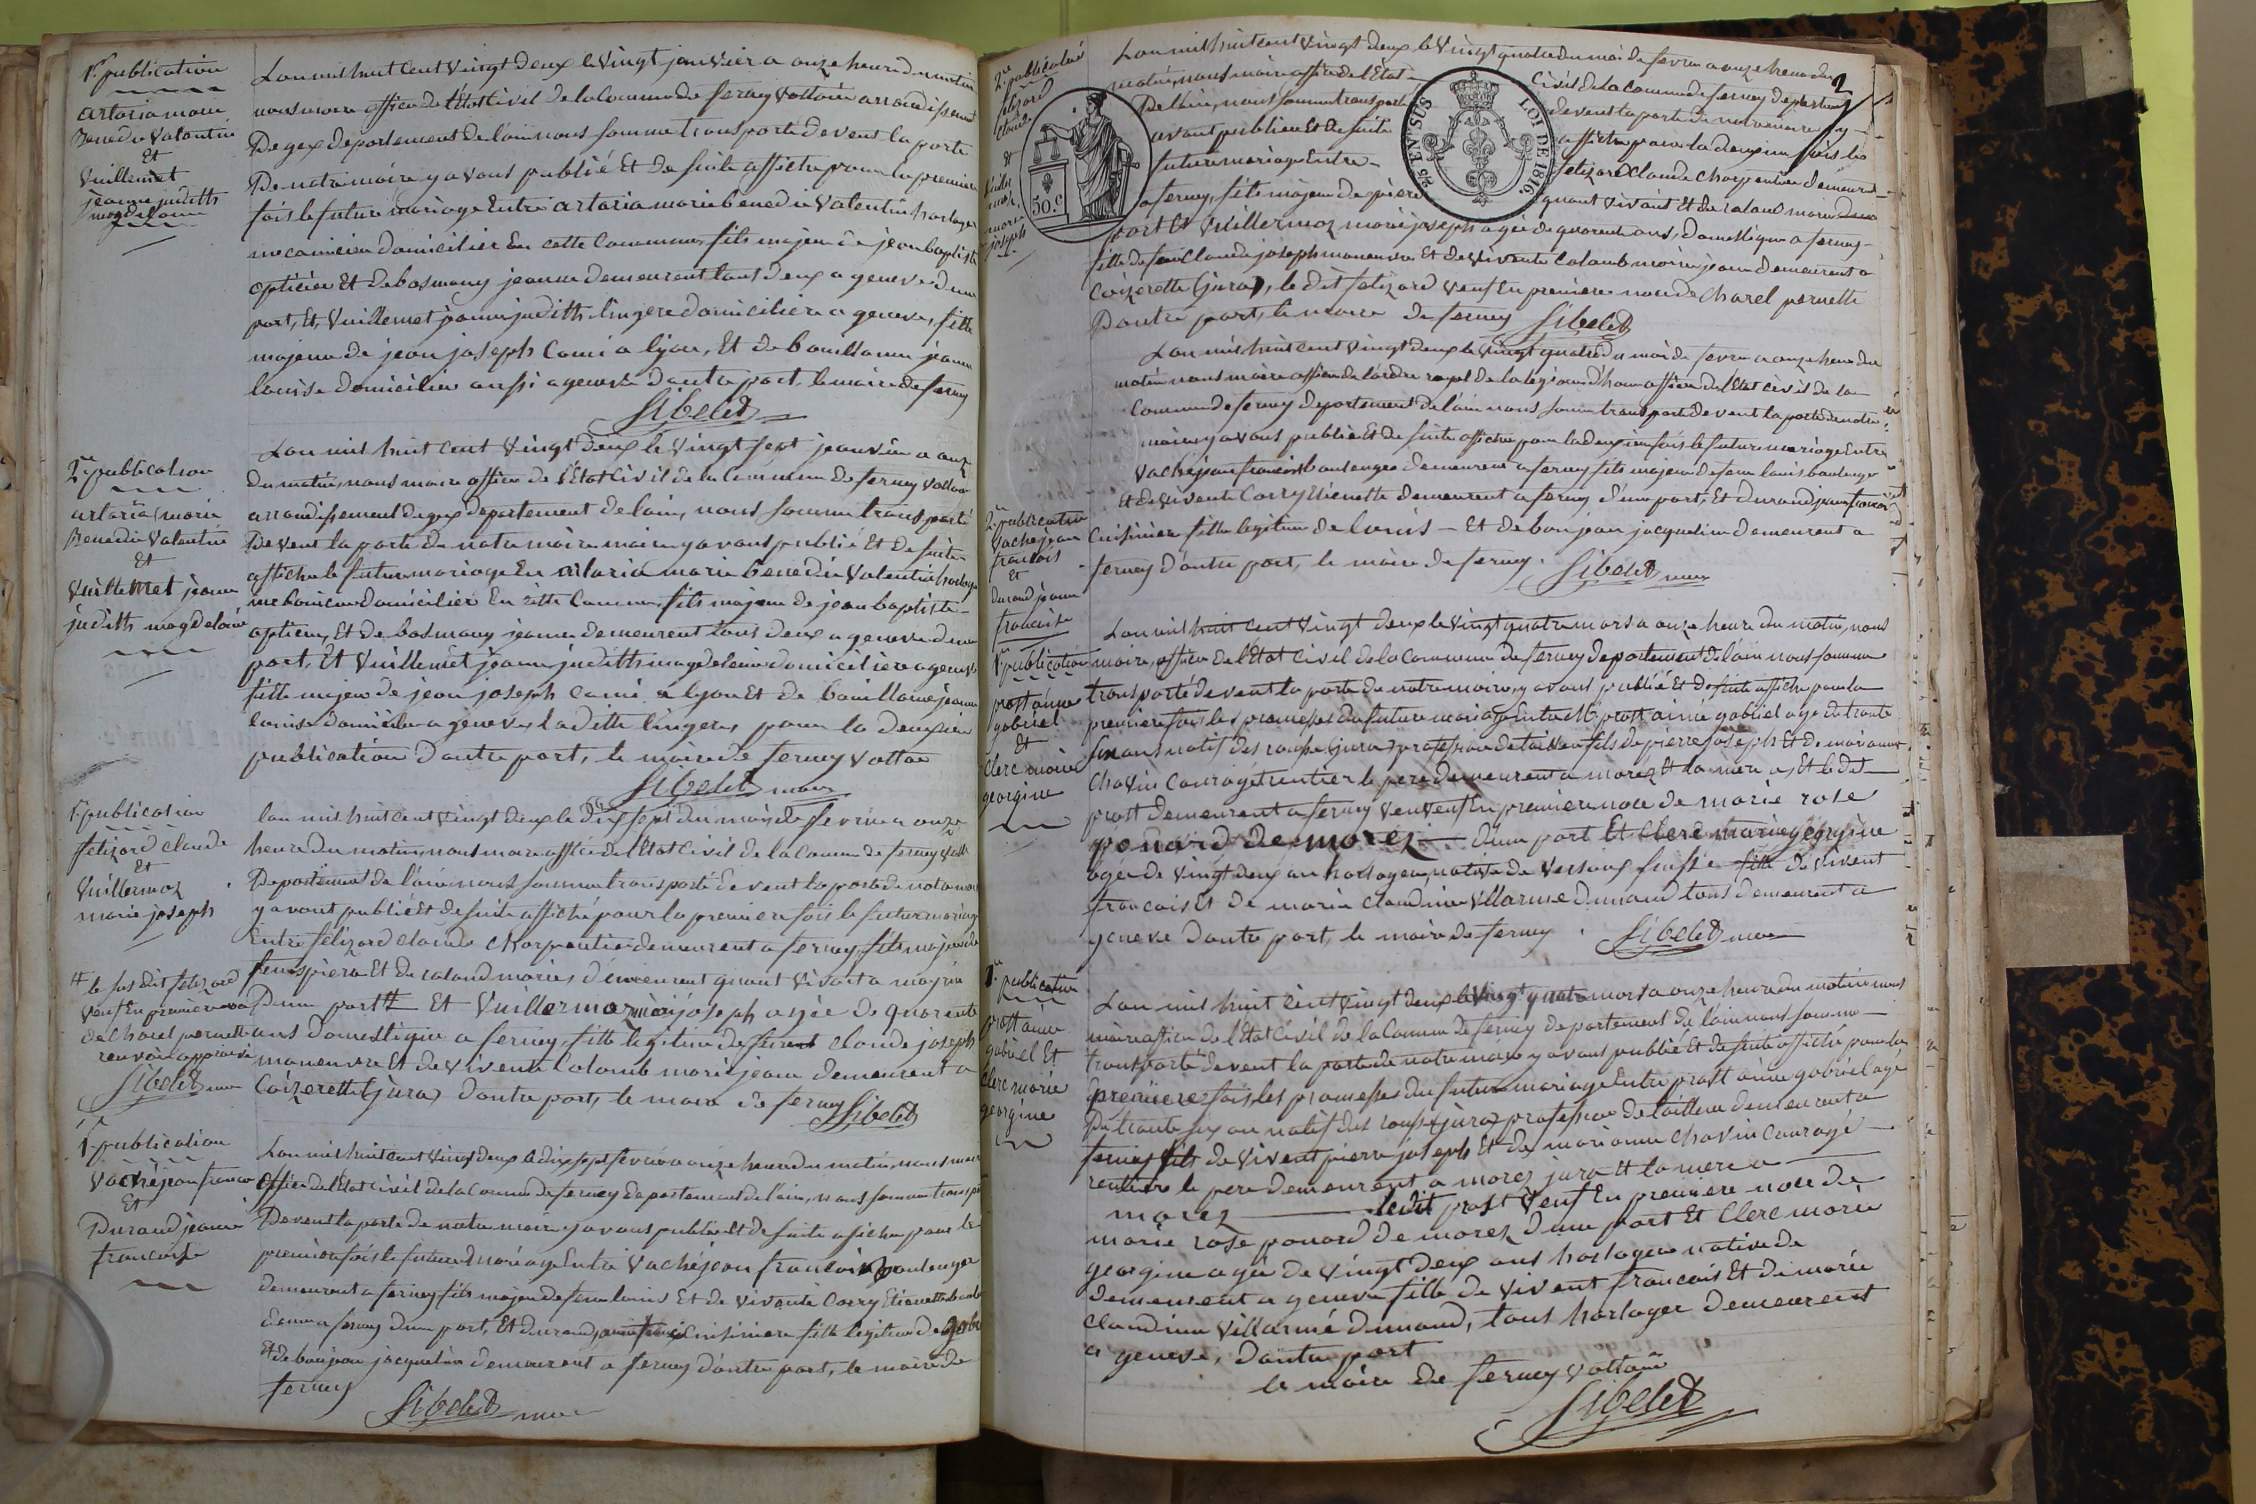 1re publication
artaria marie
Benedic Valentin
Et
Vuillemet
jeanne judith
magdelaine
Lan mil huit cent Vingt deux le Vingt janvier a onze heure du matin
nous maire officier de l'Etat Civil de la Commune de ferney Voltaire arrondissement
De gex departement de l'ain nous somme transporté devent la porte
De notre mairie y avons publié Et de suite affiché pour la premiere
fois le futur mariage Entre artaria marie benedic Valentin horloger
mecanicien domicilier En cette Commune, fils majeur de jean baptiste
opticien Et de bosmany jeanne demeurent tous deux a geneve d'une
part, Et, Vuillemet jeanne judith lingere domiciliere a geneve, fille
majeure de jean joseph Cami a lyon, Et de bouillanne jeanne
louise domicilier aussi a geneve d'autre part, le maire de ferney
Sibelet
2e publication
artaria marie
Benedic Valentin
Et
Vuillemet jeanne
judith magdelaine
Lan mil huit cent Vingt deux le Vingt sept jeanvier a onze
du matin, nous maire officier de l'Etat Civil de la Commune de ferney Voltaire
arrondissement de gex departement de l'ain, nous somme transporté
Devent la porte de notre mairie y avons publié Et de suite
affiché le futur mariage En artaria marie benedic Valentin horloger
mechanicien domicilier En cette Commune fils majeur de jean baptiste
opticien, Et de bosmany jeanne demeurent tous deux a geneve d'une
part, Et Vuillemet jeanne judith magdeleine domiciliere a geneve
fille majeur de jean joseph Cami a lyon Et de bouillanne jeanne
louise domicilie a geneve, laditte lingere, pour la deuxieme
publication D'autre part, le maire de ferney Voltaire
Sibelet maire
1re publication
felizard claude
Et
Vuillermoz
marie joseph
lan mil huit cent Vingt deux le dix sept du mois de fevrier a onze
heure du matin, nous maire officier de l'Etat Civil de la Commune de ferney Volt
Departement de l'ain nous somme transporté devent la porte de notre mairie
y avont publié Et de suite affiché pour la premiere fois le futur mariage
Entre felizard claude charpentier demeurent a ferney, fils majeur de
feus piere Et de caland marie, demeurent quant Vivoit a
D'une part # Et Vuillermoz marie joseph agée de quarente
ans Domestique a ferney, fille legitime de feu claude joseph
maneuvre Et de Vivente Colomb marie jeane demeurent a
Coizerette (jura) D'autre part, le maire de ferney Sibelet
# le susdit felizard
Veuf En premiere noce
de Charel pernette
renvoi approuvé
Sibelet maire
1re publication
Vaché jean francois
Et
Durand jeanne
francoise
Lan mil huit cent Vingt deux le dix sept fevrier a onze heure du matin, nous maire
officier de l'Etat Civil de la Commune de ferney departement de l'ain, nous somme transporté
Devent la porte de notre mairie y avons publié Et de suite affiché pour la
premiere fois le futur mariage Entre Vaché jean francois boulenger
demeurent a ferney fils majeur de feu louis Et de Vivente Corry Etienette
a ferney d'une part, Et durand jeanne Cuisiniere fille legitime de
Et de bonjean jacqueline demeurent a ferney d'autre part, le maire de
ferney
Sibelet maire
2
2e publication
felizard
claude
Et
Vuillermoz
marie
joseph
50.c
25 EN SUS
LOI DE 1816.
Lan mil huit cent Vingt deux le Vingt quatre du mois de fevrier a onze heure du
matin, nous maire officier de l'Etat Civil de la Commune de ferney departement
De l'ain, nous somme transporté devent la porte de notre mairie y
avont publier Et de suite affiché pour la deuxieme fois le
futur mariage Entre felizard Claude Charpentier demeurent
a ferney, fils majeur de pierre quant Vivant Et de caland marie d'une
part Et Vuillermoz marie joseph agée de quarente ans, Domestique a ferney
fille de feu Claude joseph maneuvre Et de Vivente Colomb marie jeane demeurent a
Coizerette (jura), le dit felizard Veuf En premiere noce de Charel pernette
D'autre part, le maire de ferney Sibelet
Lan mil huit cent Vingt deux le Vingt quatre du mois de fevrier a onze heure du
matin nous maire officier de l'ordre royal de la legion d'honneur officier de l'Etat Civil de la
Commune de ferney departement de l'ain nous somme transporté devent la porte de notre
mairie y avons publié Et de suite affiché pour la deuxieme fois le futur mariage Entre
Vaché jean francois boulenger demeurent a ferney fils majeur de feu louis boulenger
Et de Vivente Corry Etienette demeurent a ferney d'une part, Et durand jeanne francoise
Cuisiniere fille legitime de louis - Et de bonjean jacqueline demeurent a
ferney d'autre part, le maire de ferney. Sibelet maire
2e publication
Vaché jean
francois
Et
durand jeanne
francoise
1re publication
prost aimé
gabriel
Et
Clerc marie
georgine
Lan mil huit cent Vingt deux le Vingt quatre mars a onze heure du matin, nous
maire, officier de l'Etat Civil de la Commune de ferney departement de l'ain nous somme
transporté devent la porte de notre mairie, y avons publié Et de suite affiché pour la
premiere fois les promesses du future mariage Entre Mr prost aimé gabriel agé de trente
six ans natif des rousse (jura) profession de tailleur fils de pierre joseph Et de marianne
Chavin Couragé rentier le pere demeurent a morez Et la mere a Et le dit
prost demeurent a ferney Veuf En premiere noce de marie rose
ponard de morez d'une part Et Clerc marie georgine
agée de Vingt deux an horlogere, native de Versoix suisse fille de Vivent
francois Et de marie claudine Villarme dunand tous demeurent a
geneve D'autre part, le maire de ferney. Sibelet maire
1re publication
prost aimé
gabriel Et
Clerc marie
georgine
Lan mil huit cent Vingt deux le Vingt quatre mars a onze heure du matin nous
maire officier de l'Etat Civil de la Commune de ferney departement de l'ain nous somme
transporté devent la porte de notre mairie y avons publié Et de suite affiché pour la
premiere fois, les promesses du futur mariage Entre prost aimé gabriel agé
De trente six an natif des rousse (jura) profession de tailleur demeurent a
ferney fils de Vivent pierre joseph Et de marianne Chavin Couragé
rentier le pere demeurent a morez jura Et la mere a
morez ledit prost Veuf En premiere noce de
marie rose ponard de morez d'une part Et Clerc marie
georgine agée de Vingt deux ans horlogere native de
demeurent a geneve fille de Vivent francois Et de marie
Claudine Villarmé dunand, tous horloger demeurent
a geneve, D'autre part
le maire de ferney Voltaire
Sibelet